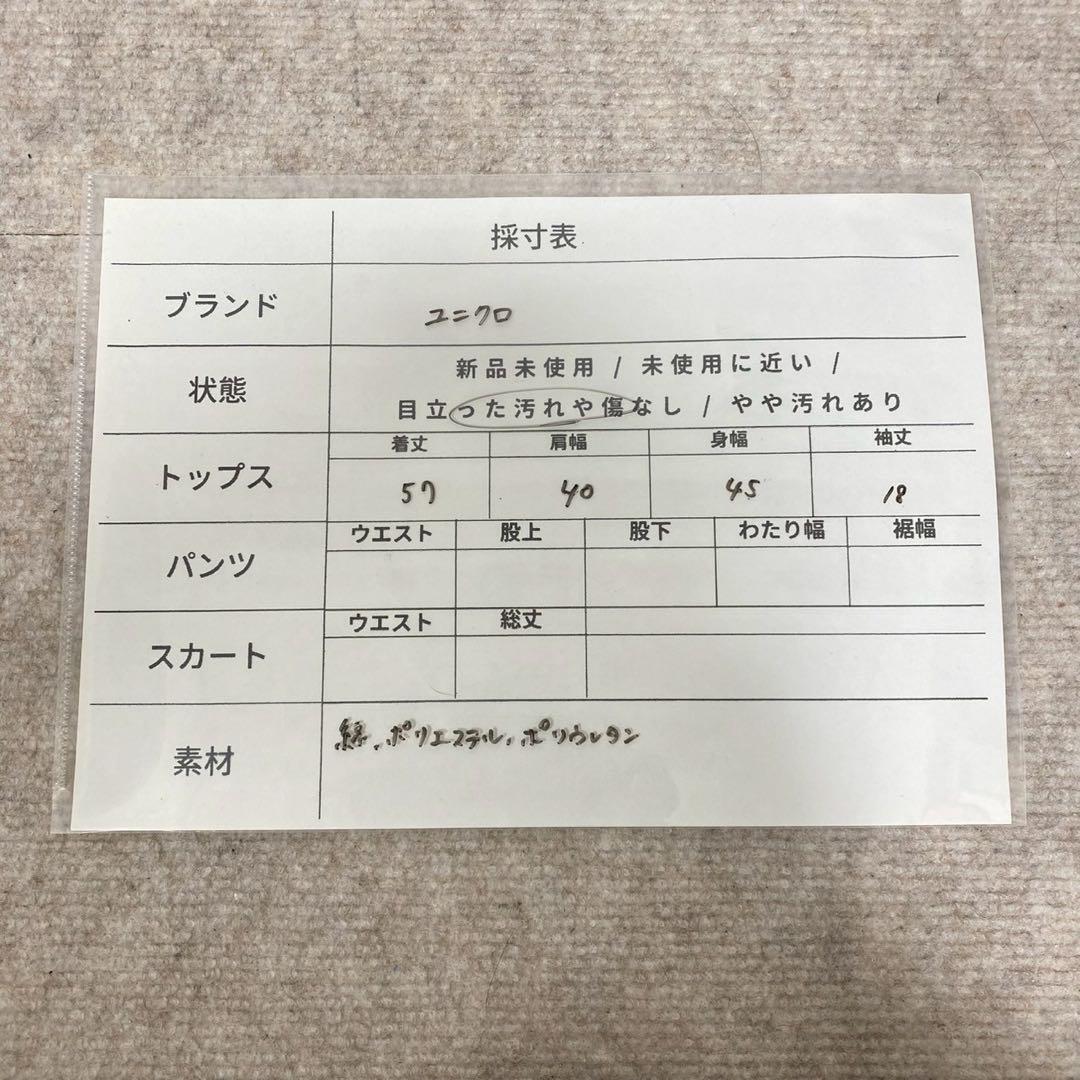 採寸表
ブランド ユニクロ
状態 新品未使用 / 未使用に近い /
目立った汚れや傷なし / やや汚れあり
トップス 着丈 肩幅 身幅 袖丈
57 40 45 18
パンツ ウエスト 股上 股下 わたり幅 裾幅
スカート ウエスト 総丈
素材 綿、ポリエステル、ポリウレタン